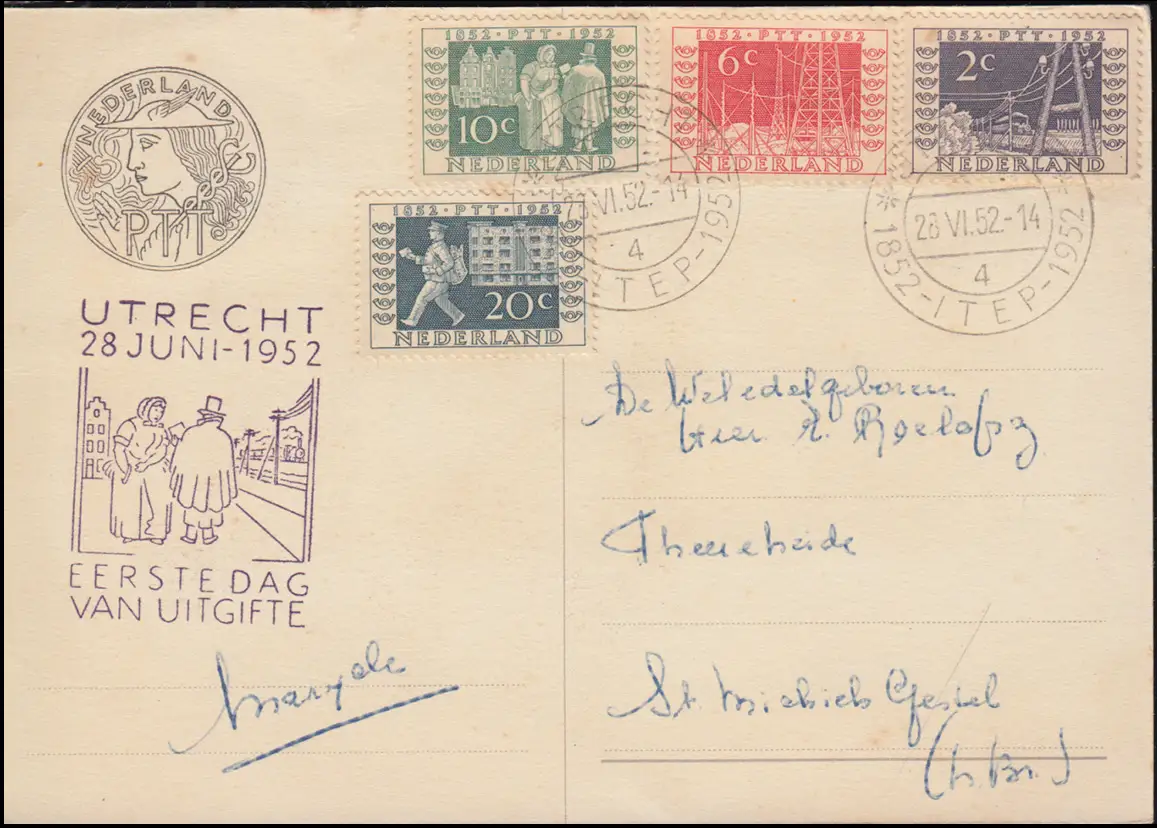 NEDERLAND
PTT
1852 · PTT · 1952
10c
NEDERLAND
1852 · PTT · 1952
6c
NEDERLAND
1852 · PTT · 1952
2c
NEDERLAND
1852 · PTT · 1952
20c
NEDERLAND
28 VI.52.-14
4
ITEP-1952
28 VI.52.-14
4
1852-ITEP-1952
UTRECHT
28 JUNI-1952
EERSTE DAG
VAN UITGIFTE
De Weledelgeboren
Heer
St. Michiels Gestel
(N. Br.)